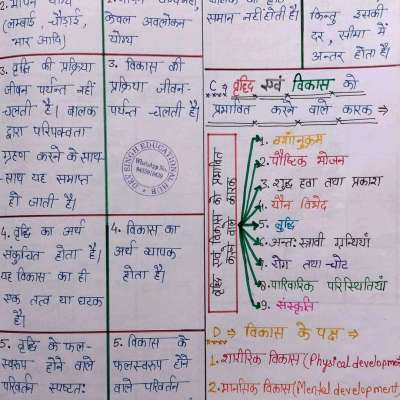 2. मापन योग्य
(लम्बाई, चौड़ाई,
भार आदि)
केवल अवलोकन
योग्य
3. वृद्धि की प्रक्रिया
जीवन पर्यन्त नहीं
चलती है। बालक
द्वारा परिपक्वता
ग्रहण करने के साथ
-साथ यह समाप्त
हो जाती है।
3. विकास की
प्रक्रिया जीवन-
पर्यन्त चलती है।
4. वृद्धि का अर्थ
संकुचित होता है।
यह विकास का ही
एक तत्व या घटक
है।
4. विकास का
अर्थ व्यापक
होता है।
5. वृद्धि के फल-
स्वरूप होने वाले
परिवर्तन स्पष्टतः
5. विकास के
फलस्वरूप होने
वाले परिवर्तन
समान नहीं होती है।
किन्तु इसकी
दर, सीमा में
अन्तर होता है।
C ⇒ वृद्धि एवं विकास को
प्रभावित करने वाले कारक ⇒
वृद्धि एवं विकास को प्रभावित
करने वाले कारक
1. वंशानुक्रम
2. पौष्टिक भोजन
3. शुद्ध हवा तथा प्रकाश
4. यौन विभेद
5. बुद्धि
6. अन्तः स्त्रावी ग्रन्थियाँ
7. रोग तथा चोट
8. पारिवारिक परिस्थितियाँ
9. संस्कृति
D ⇒ विकास के पक्ष ⇒
1. शारीरिक विकास (Physical developme
2. मानसिक विकास (Mental development
DEV SINGH EDUCATION HUB
WhatsApp No.